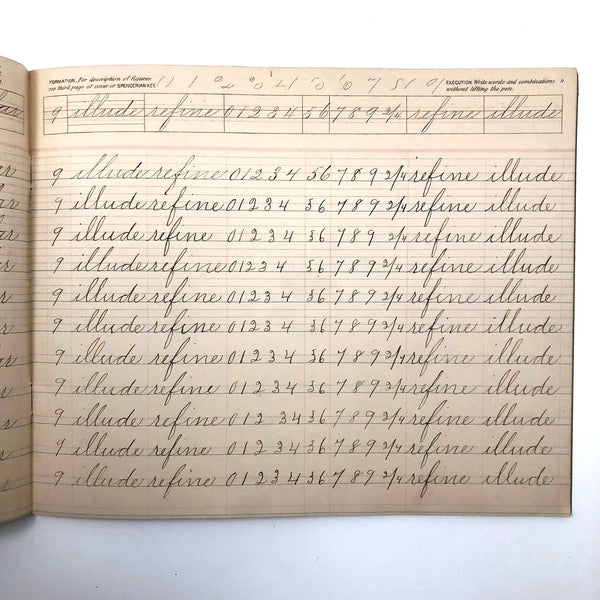 FORMATION. For description of figures
see third page of cover or SPENCERIAN KEY.
EXECUTION. Write words and combinations
without lifting the pen.
9 illude refine 0 1 2 3 4 5 6 7 8 9 2/4 refine illude
9 illude refine 0 1 2 3 4 5 6 7 8 9 2/4 refine illude
9 illude refine 0 1 2 3 4 5 6 7 8 9 2/4 refine illude
9 illude refine 0 1 2 3 4 5 6 7 8 9 2/4 refine illude
9 illude refine 0 1 2 3 4 5 6 7 8 9 2/4 refine illude
9 illude refine 0 1 2 3 4 5 6 7 8 9 2/4 refine illude
9 illude refine 0 1 2 3 4 5 6 7 8 9 2/4 refine illude
9 illude refine 0 1 2 3 4 5 6 7 8 9 2/4 refine illude
9 illude refine 0 1 2 3 4 5 6 7 8 9 2/4 refine illude
9 illude refine 0 1 2 3 4 5 6 7 8 9 2/4 refine illude
9 illude refine 0 1 2 3 4 5 6 7 8 9 2/4 refine illude
9 illude refine 0 1 2 3 4 5 6 7 8 9 2/4 refine illude